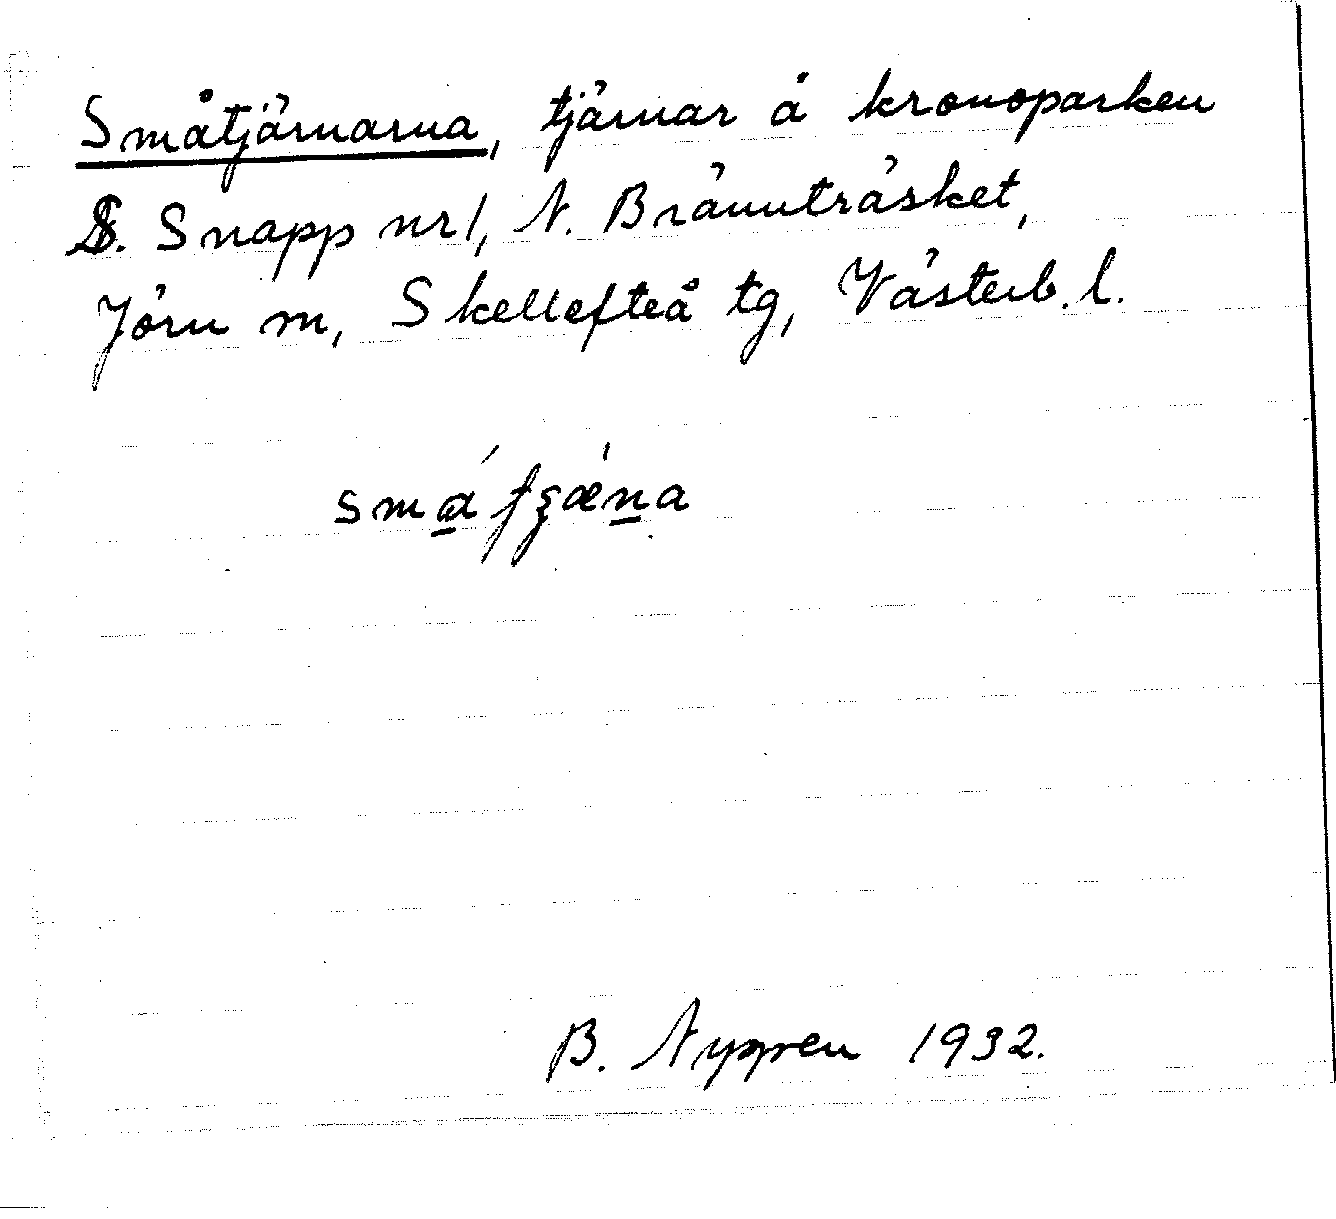 Småtjärnarna, tjärnar å kronoparken
S. Snapp nr 1, N. Brännträsket,
Jörn m, Skellefteå tg, Västerb. l.
B. Nygren 1932.